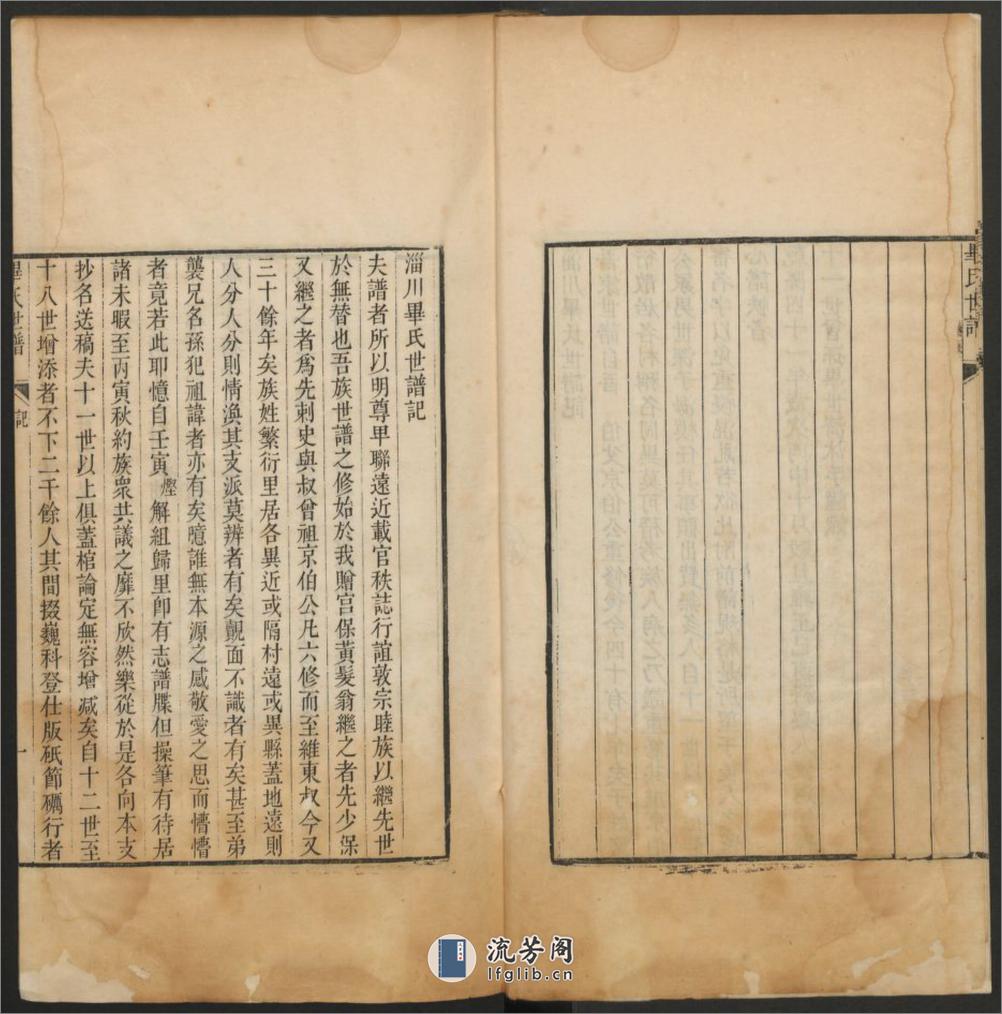 畢氏世譜
淄川畢氏世譜記
夫譜者所以明尊卑聯遠近載官秩誌行誼敦宗睦族以繼先世
於無替也吾族世譜之修始於我贈宮保黃髮翁繼之者先少保
又繼之者爲先刺史與叔曾祖京伯公凡六修而至維東叔今又
三十餘年矣族姓繁衍里居各異近或隔村遠或異縣蓋地遠則
人分人分則情渙其支派莫辨者有矣覿面不識者有矣甚至弟
襲兄名孫犯祖諱者亦有矣噫誰無本源之感敬愛之思而懵懵
者竟若此耶憶自壬寅㷫解組歸里卽有志譜牒但操筆有待居
諸未暇至丙寅秋約族衆共議之靡不欣然樂從於是各向本支
抄名送稿夫十一世以上俱蓋棺論定無容增減矣自十二世至
十八世增添者不下二千餘人其間掇巍科登仕版砥節礪行者
畢氏世譜 記 一
流芳阁
lfglib.cn